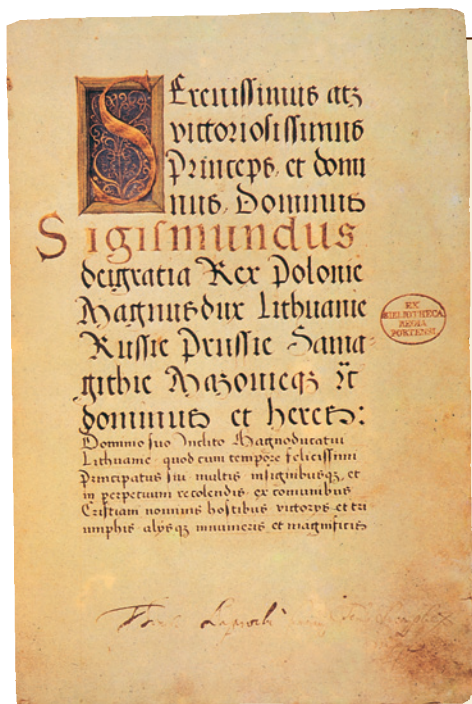 Serenissimus atq
victoriosissimus
Princeps et domi
nus, Dominus
Sigismundus
deigratia Rex Polonie
Magnus dux Lithuanie
Russie Prussie Sama
githie Mazonieq; ꝛc
dominus et heres:
Dominio suo Inclito Magnoducatui
Lithuanie quod cum tempore felicissimi
Principatus sui multis insignibusq, et
in perpetuum recolendis ex comunibus
Cristiani nominis hostibus victorys et tri
umphis alysq innumeris et magnificis
EX
BIBLIOTHECA
REGIA
PORTENSI